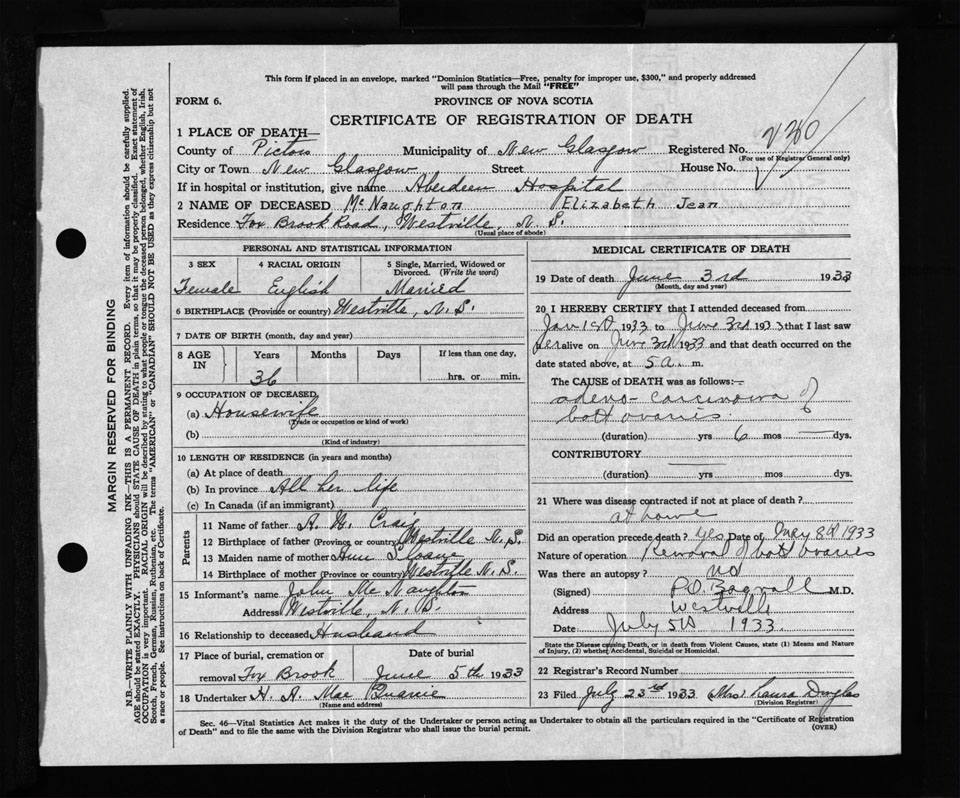 This form if placed in an envelope, marked "Dominion Statistics—Free, penalty for improper use, $300," and properly addressed
will pass through the Mail "FREE"
FORM 6.
PROVINCE OF NOVA SCOTIA
CERTIFICATE OF REGISTRATION OF DEATH
1 PLACE OF DEATH—
County of Pictou Municipality of New Glasgow Registered No.
(For use of Registrar General only)
City or Town New Glasgow Street House No.
If in hospital or institution, give name Aberdeen Hospital
2 NAME OF DECEASED McNaughton Elizabeth Jean
Residence Fox Brook Road, Westville, N. S.
(Usual place of abode)
PERSONAL AND STATISTICAL INFORMATION
3 SEX 4 RACIAL ORIGIN 5 Single, Married, Widowed or
Divorced. (Write the word)
Female English Married
6 BIRTHPLACE (Province or country) Westville, N. S.
7 DATE OF BIRTH (month, day and year)
8 AGE IN Years Months Days If less than one day,
36 hrs. or min.
9 OCCUPATION OF DECEASED
(a) Housewife
(Trade or occupation or kind of work)
(b)
(Kind of industry)
10 LENGTH OF RESIDENCE (in years and months)
(a) At place of death
(b) In province All her life
(c) In Canada (if an immigrant)
Parents
11 Name of father Craig
12 Birthplace of father (Province or country) Westville N. S.
13 Maiden name of mother Ann Sloane
14 Birthplace of mother (Province or country) Westville N. S.
15 Informant's name John McNaughton
Address Westville, N. S.
16 Relationship to deceased Husband
17 Place of burial, cremation or Date of burial
removal Fox Brook June 5th 1933
18 Undertaker H. A. Mac Quarrie
(Name and address)
MEDICAL CERTIFICATE OF DEATH
19 Date of death June 3rd 1933
(Month, day and year)
20 I HEREBY CERTIFY that I attended deceased from
Jan 1st 1933 to June 3rd 1933 that I last saw
her alive on June 3rd 1933 and that death occurred on the
date stated above, at 5 a. m.
The CAUSE OF DEATH was as follows:—
adeno-carcinoma of
both ovaries
(duration) yrs 6 mos — dys.
CONTRIBUTORY
(duration) yrs mos dys.
21 Where was disease contracted if not at place of death?
at home
Did an operation precede death? yes Date of 8th 1933
Nature of operation Removal of both ovaries
Was there an autopsy? no
(Signed) Bagnall M.D.
Address Westville
Date July 5th 1933.
State the Disease causing Death, or in death from Violent Causes, state (1) Means and Nature
of Injury, (2) whether Accidental, Suicidal or Homicidal.
22 Registrar's Record Number
23 Filed July 23rd 1933 (Mrs) Laura Douglas
(Division Registrar)
Sec. 46—Vital Statistics Act makes it the duty of the Undertaker or person acting as Undertaker to obtain all the particulars required in the "Certificate of Registration
of Death" and to file the same with the Division Registrar who shall issue the burial permit.
(OVER)
MARGIN RESERVED FOR BINDING
N.B.—WRITE PLAINLY WITH UNFADING INK—THIS IS A PERMANENT RECORD. Every item of information should be carefully supplied.
AGE should be stated EXACTLY. PHYSICIANS should STATE CAUSE OF DEATH in plain terms, so that it may be properly classified. Exact statement of
OCCUPATION is very important. RACIAL ORIGIN will be described by stating to what people or tongue the deceased person belonged, whether English, Irish,
Scotch, French, German, Russian, Ruthenian, etc. The terms "AMERICAN" or "CANADIAN" SHOULD NOT BE USED as they express citizenship but not
a race or people. See instructions on back of Certificate.